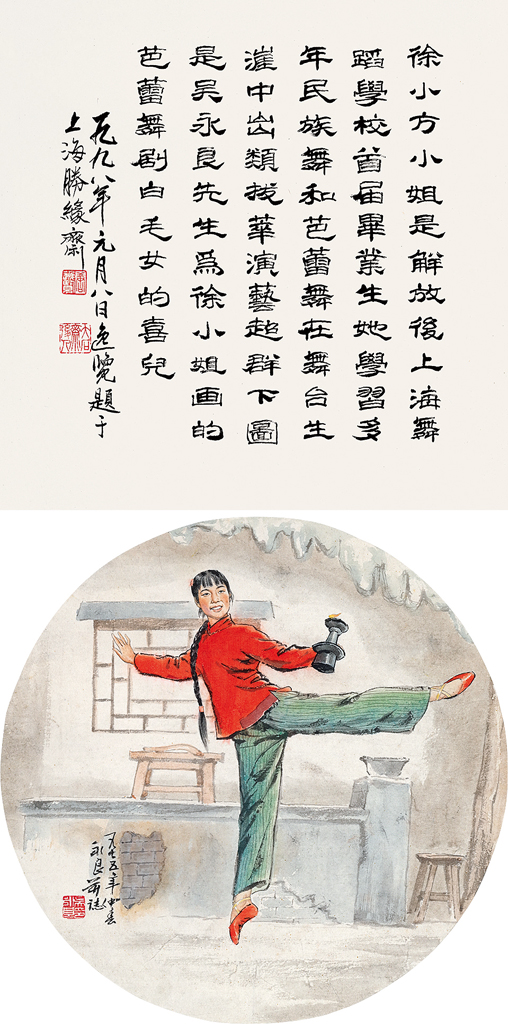 徐小方小姐是解放後上海舞
蹈學校首届畢業生她學習多
年民族舞和芭蕾舞在舞台生
涯中出類拔萃演藝超群下圖
是吴永良先生爲徐小姐画的
芭蕾舞劇白毛女的喜兒
一九九八年元月八日逸覽題于
上海勝緣齋
一九七五年仲春
永良并誌